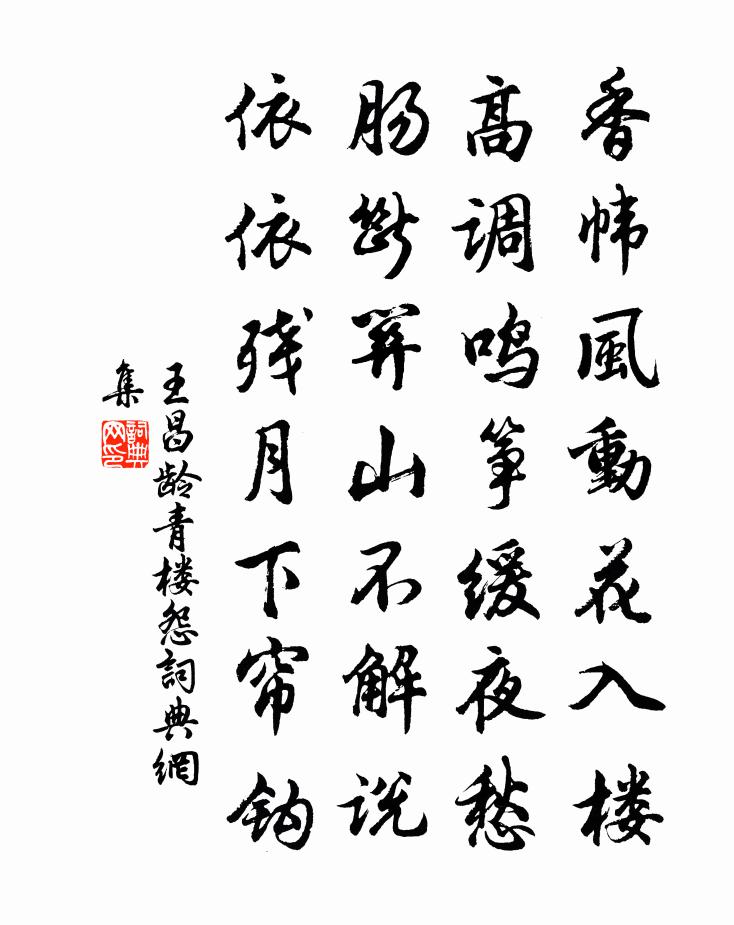 香帏風動花入楼
高调鸣筝缓夜愁
肠断関山不解说
依依残月下帘钩
王昌龄青楼怨詞典網
集
詞典
网印